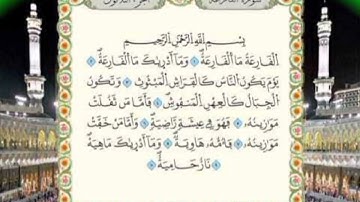 سورة القارعة الجزء الثلاثون
بِسْمِ اللَّهِ الرَّحْمَٰنِ الرَّحِيمِ
الْقَارِعَةُ مَا الْقَارِعَةُ وَمَا أَدْرَاكَ مَا الْقَارِعَةُ
يَوْمَ يَكُونُ النَّاسُ كَالْفَرَاشِ الْمَبْثُوثِ وَتَكُونُ
الْجِبَالُ كَالْعِهْنِ الْمَنفُوشِ فَأَمَّا مَن ثَقُلَتْ
مَوَازِينُهُ فَهُوَ فِي عِيشَةٍ رَّاضِيَةٍ وَأَمَّا مَنْ خَفَّتْ
مَوَازِينُهُ فَأُمُّهُ هَاوِيَةٌ وَمَا أَدْرَاكَ مَا هِيَهْ
نَارٌ حَامِيَةٌ